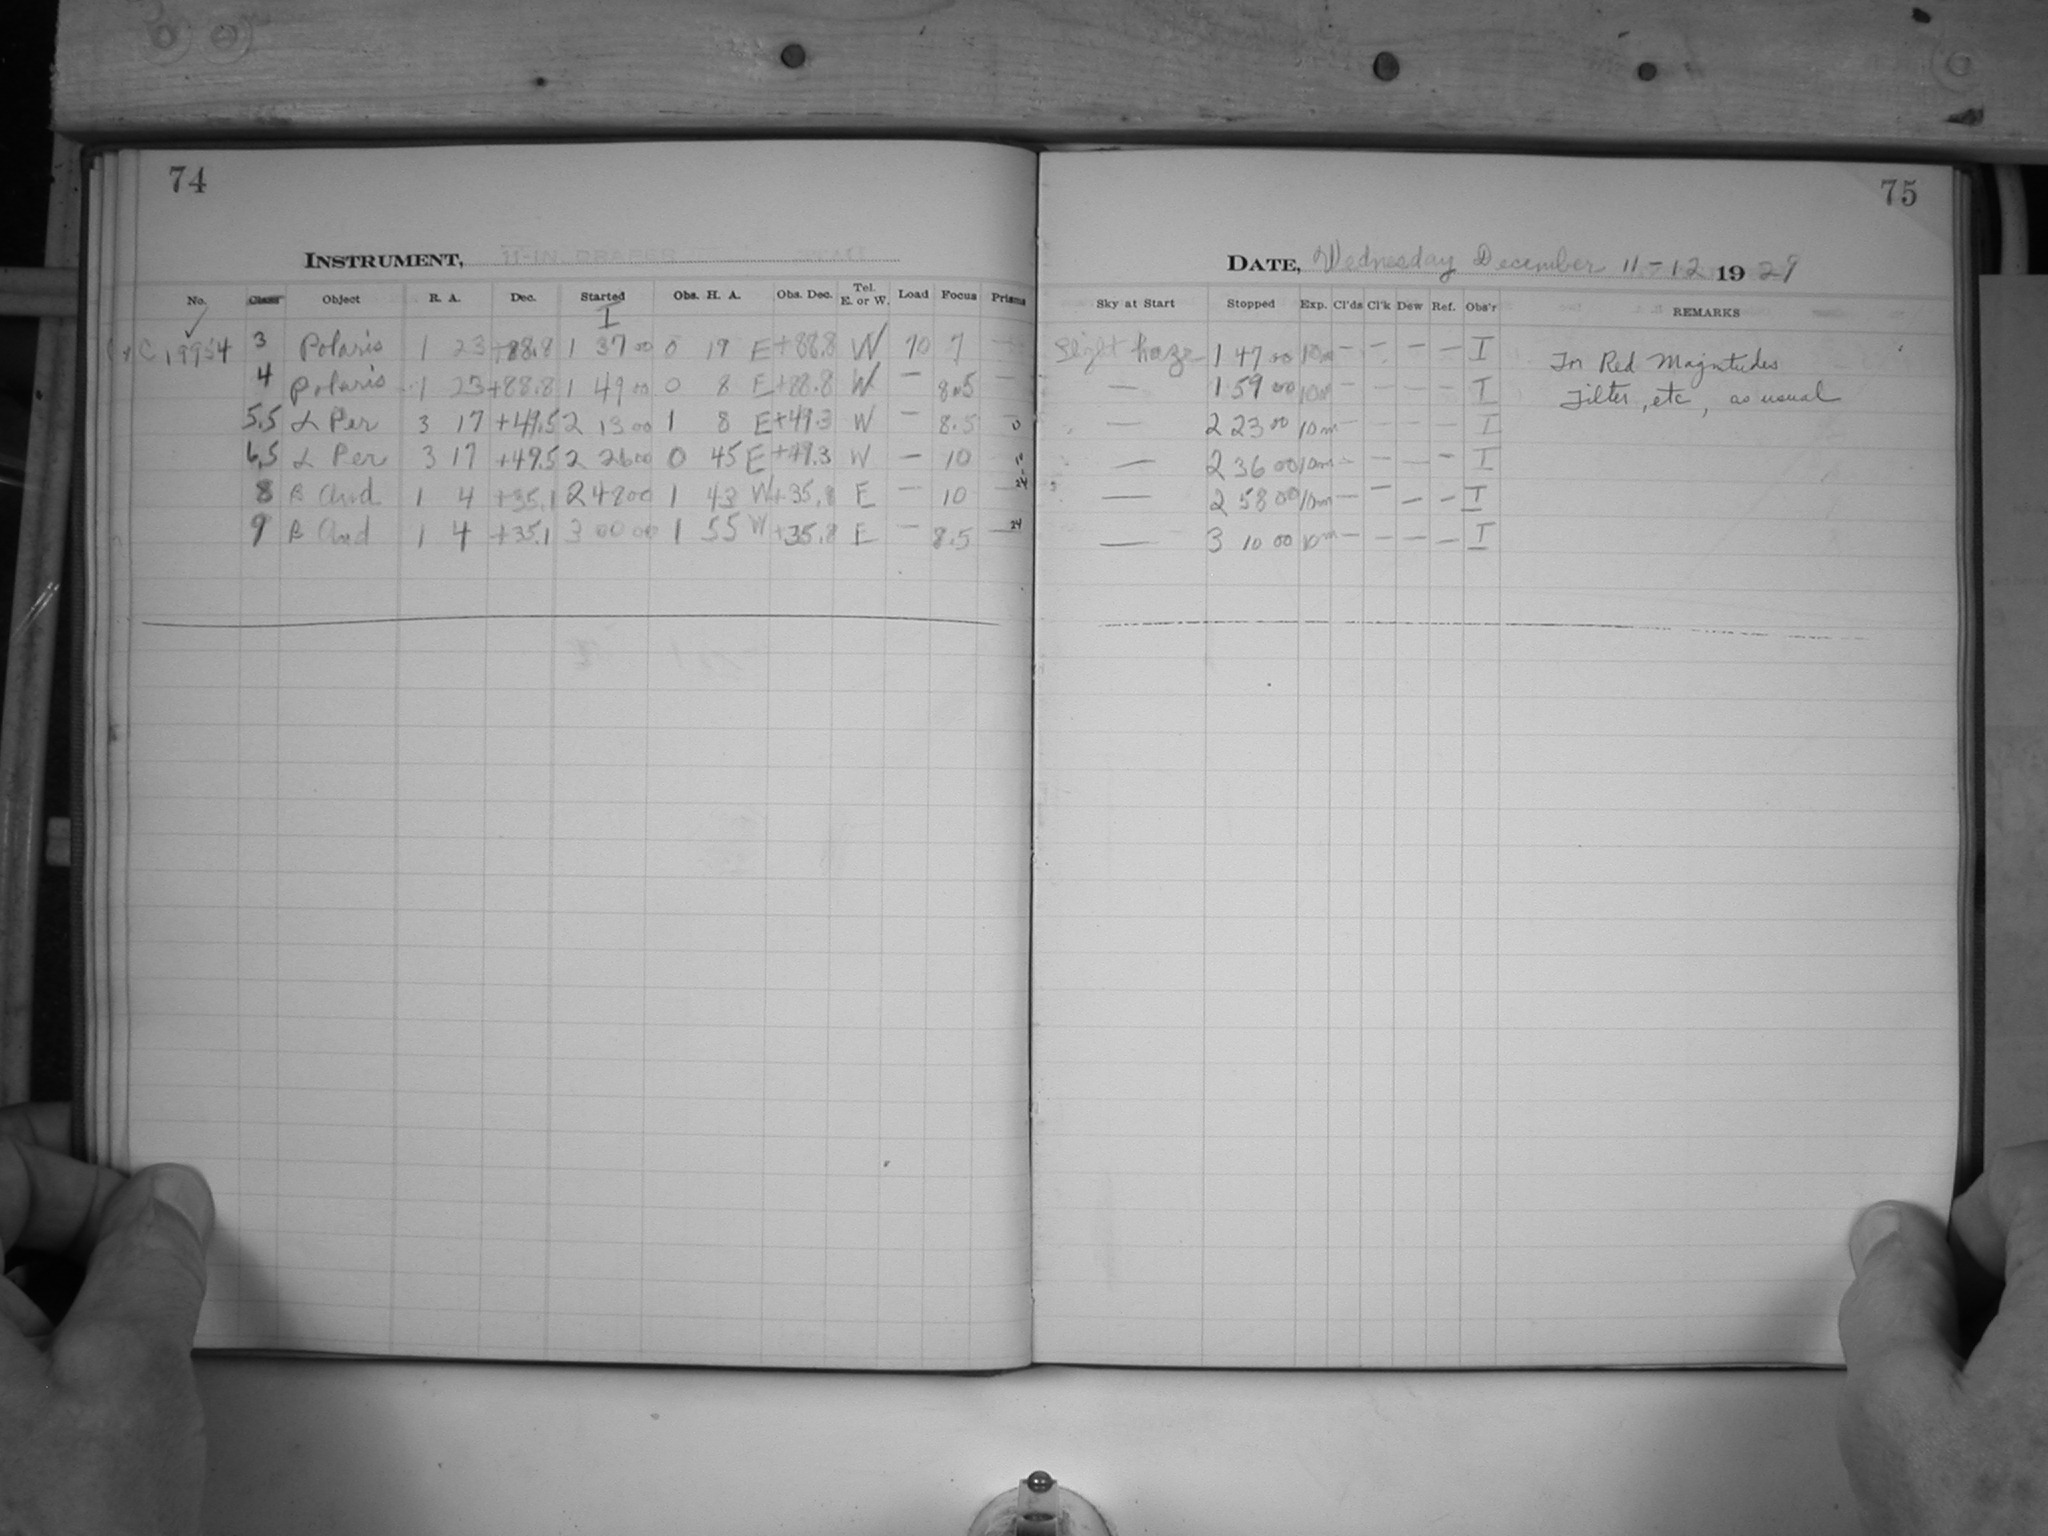 74
INSTRUMENT, 11-IN. DRAPER
No. Class Object R. A. Dec. Started Obs. H. A. Obs. Dec. Tel. E. or W. Load Focus Prisms
I
C 19954 3 Polaris 1 23 +88.8 1 37 00 0 19 E +88.8 W 70 7 —
4 Polaris 1 23 +88.8 1 49 00 0 8 E +88.8 W — 8.5 —
5.5 α Per 3 17 +49.5 2 13 00 1 8 E +49.3 W — 8.5
6.5 α Per 3 17 +49.5 2 26 00 0 45 E +49.3 W — 10
8 β And 1 4 +35.1 2 48 00 1 43 W +35.8 E — 10 — 24
9 β And 1 4 +35.1 3 00 00 1 55 W +35.8 E — 8.5 — 24
75
DATE, Wednesday December 11-12 1929
Sky at Start Stopped Exp. Cl'ds Cl'k Dew Ref. Obs'r REMARKS
Slight haze 1 47 00 10m — — — — I In Red Magnitudes
— 1 59 00 10m — — — — I Filter, etc, as usual
— 2 23 00 10m — — — — I
— 2 36 00 10m — — — — I
— 2 58 00 10m — — — — I
— 3 10 00 10m — — — — I